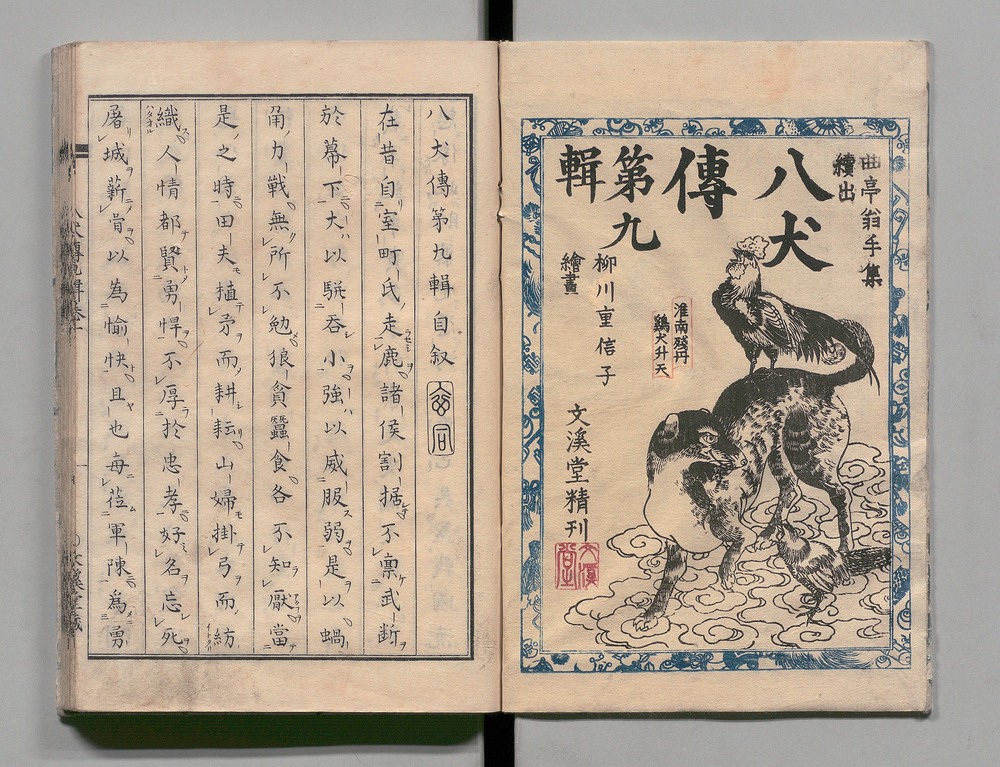 曲亭翁手集
續出
八犬
傳
第九
輯
柳川重信子
繪畫
淮南殘丹
鷄犬升天
文溪堂精刊
文溪堂
八犬傳第九輯自叙
在昔自室町氏走鹿諸侯割據不禀武斷
於幕下大以駢吞小強以威服弱是以蝸
角力戰無所不勉狼貪蠶食各不知厭當
是之時田夫植矛而耕耘山婦掛弓而紡
織人情都賢勇悍不厚於忠孝好名忘死
屠城薪骨以為愉快且也每莅軍陳為勇